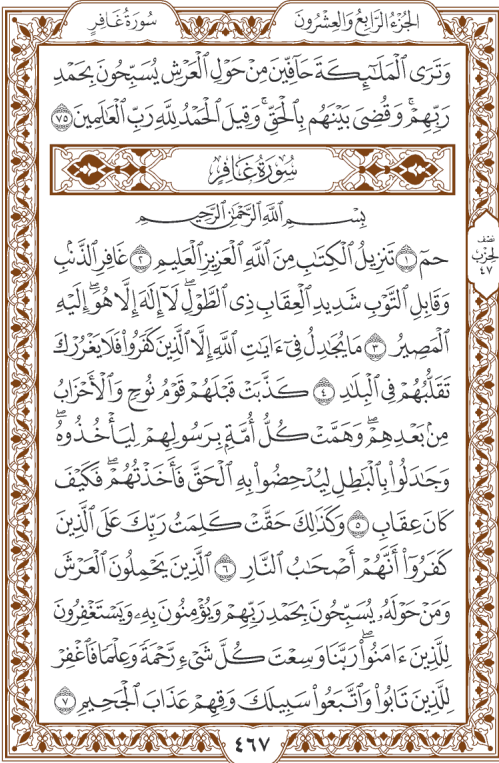 سُورَةُ غَافِرٍ
الجُزْءُ الرَّابِعُ وَالعِشْرُونَ
وَتَرَى ٱلْمَلَـٰٓئِكَةَ حَآفِّينَ مِنْ حَوْلِ ٱلْعَرْشِ يُسَبِّحُونَ بِحَمْدِ
رَبِّهِمْ ۖ وَقُضِىَ بَيْنَهُم بِٱلْحَقِّ ۚ وَقِيلَ ٱلْحَمْدُ لِلَّهِ رَبِّ ٱلْعَـٰلَمِينَ ٧٥
سُورَةُ غَافِرٍ
بِسْمِ ٱللَّهِ ٱلرَّحْمَـٰنِ ٱلرَّحِيمِ
حمٓ ١ تَنزِيلُ ٱلْكِتَـٰبِ مِنَ ٱللَّهِ ٱلْعَزِيزِ ٱلْعَلِيمِ ٢ غَافِرِ ٱلذَّنۢبِ
وَقَابِلِ ٱلتَّوْبِ شَدِيدِ ٱلْعِقَابِ ذِى ٱلطَّوْلِ ۖ لَآ إِلَـٰهَ إِلَّا هُوَ ۖ إِلَيْهِ
ٱلْمَصِيرُ ٣ مَا يُجَـٰدِلُ فِىٓ ءَايَـٰتِ ٱللَّهِ إِلَّا ٱلَّذِينَ كَفَرُوا۟ فَلَا يَغْرُرْكَ
تَقَلُّبُهُمْ فِى ٱلْبِلَـٰدِ ٤ كَذَّبَتْ قَبْلَهُمْ قَوْمُ نُوحٍ وَٱلْأَحْزَابُ
مِنۢ بَعْدِهِمْ ۖ وَهَمَّتْ كُلُّ أُمَّةٍۭ بِرَسُولِهِمْ لِيَأْخُذُوهُ ۖ
وَجَـٰدَلُوا۟ بِٱلْبَـٰطِلِ لِيُدْحِضُوا۟ بِهِ ٱلْحَقَّ فَأَخَذْتُهُمْ ۖ فَكَيْفَ
كَانَ عِقَابِ ٥ وَكَذَٰلِكَ حَقَّتْ كَلِمَتُ رَبِّكَ عَلَى ٱلَّذِينَ
كَفَرُوٓا۟ أَنَّهُمْ أَصْحَـٰبُ ٱلنَّارِ ٦ ٱلَّذِينَ يَحْمِلُونَ ٱلْعَرْشَ
وَمَنْ حَوْلَهُۥ يُسَبِّحُونَ بِحَمْدِ رَبِّهِمْ وَيُؤْمِنُونَ بِهِۦ وَيَسْتَغْفِرُونَ
لِلَّذِينَ ءَامَنُوا۟ ۖ رَبَّنَا وَسِعْتَ كُلَّ شَىْءٍ رَّحْمَةً وَعِلْمًا فَٱغْفِرْ
لِلَّذِينَ تَابُوا۟ وَٱتَّبَعُوا۟ سَبِيلَكَ وَقِهِمْ عَذَابَ ٱلْجَحِيمِ ٧
نصف
الحزب
٤٧
٤٦٧